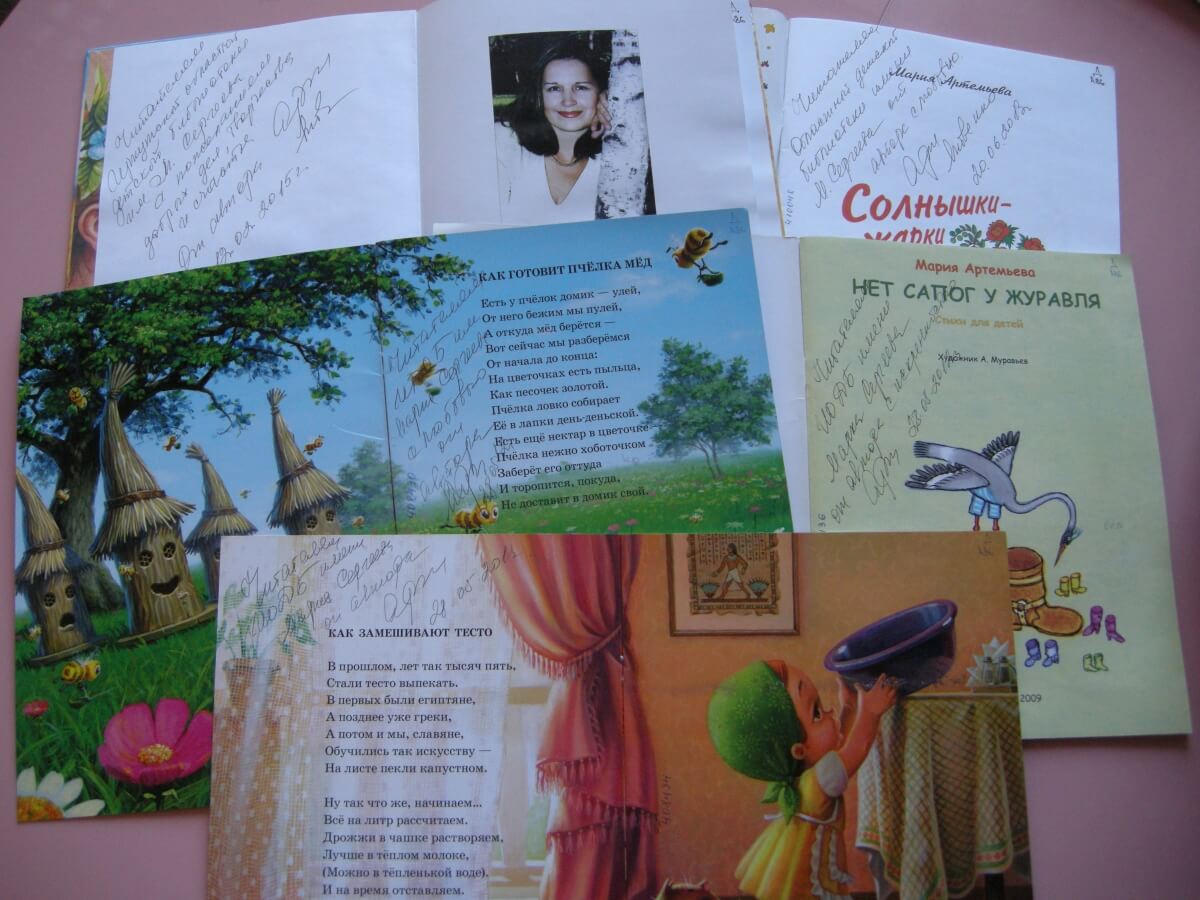 Читателям
Иркутской областной
детской библиотеки
им. М. Сергеева
с пожеланиями
добрых дел, творчества
и счастья
От автора
2015 г.
Мария Артемьева
Читателям
Областной детской
библиотеки имени
М. Сергеева от
автора с любовью
Солнышки-
жарки
КАК ГОТОВИТ ПЧЁЛКА МЁД
Есть у пчёлок домик — улей,
От него бежим мы пулей,
А откуда мёд берётся —
Вот сейчас мы разберёмся
От начала до конца:
На цветочках есть пыльца,
Как песочек золотой.
Пчёлка ловко собирает
Её в лапки день-деньской.
Есть ещё нектар в цветочке—
Пчёлка нежно хоботочком
Заберёт его оттуда
И торопится, покуда,
Не доставит в домик свой.
Читателям
Сергеева
с любовью
от
автора
Мария Артемьева
НЕТ САПОГ У ЖУРАВЛЯ
Стихи для детей
Художник А. Муравьев
Читателям
ИОДБ имени
Марка Сергеева
от автора
2009
Читателям
ИОДБ имени
Марка Сергеева
от автора
28 05
КАК ЗАМЕШИВАЮТ ТЕСТО
В прошлом, лет так тысяч пять,
Стали тесто выпекать.
В первых были египтяне,
А позднее уже греки,
А потом и мы, славяне,
Обучились так искусству —
На листе пекли капустном.
Ну так что же, начинаем...
Всё на литр рассчитаем.
Дрожжи в чашке растворяем,
Лучше в тёплом молоке,
(Можно в тёпленькой воде).
И на время отставляем.